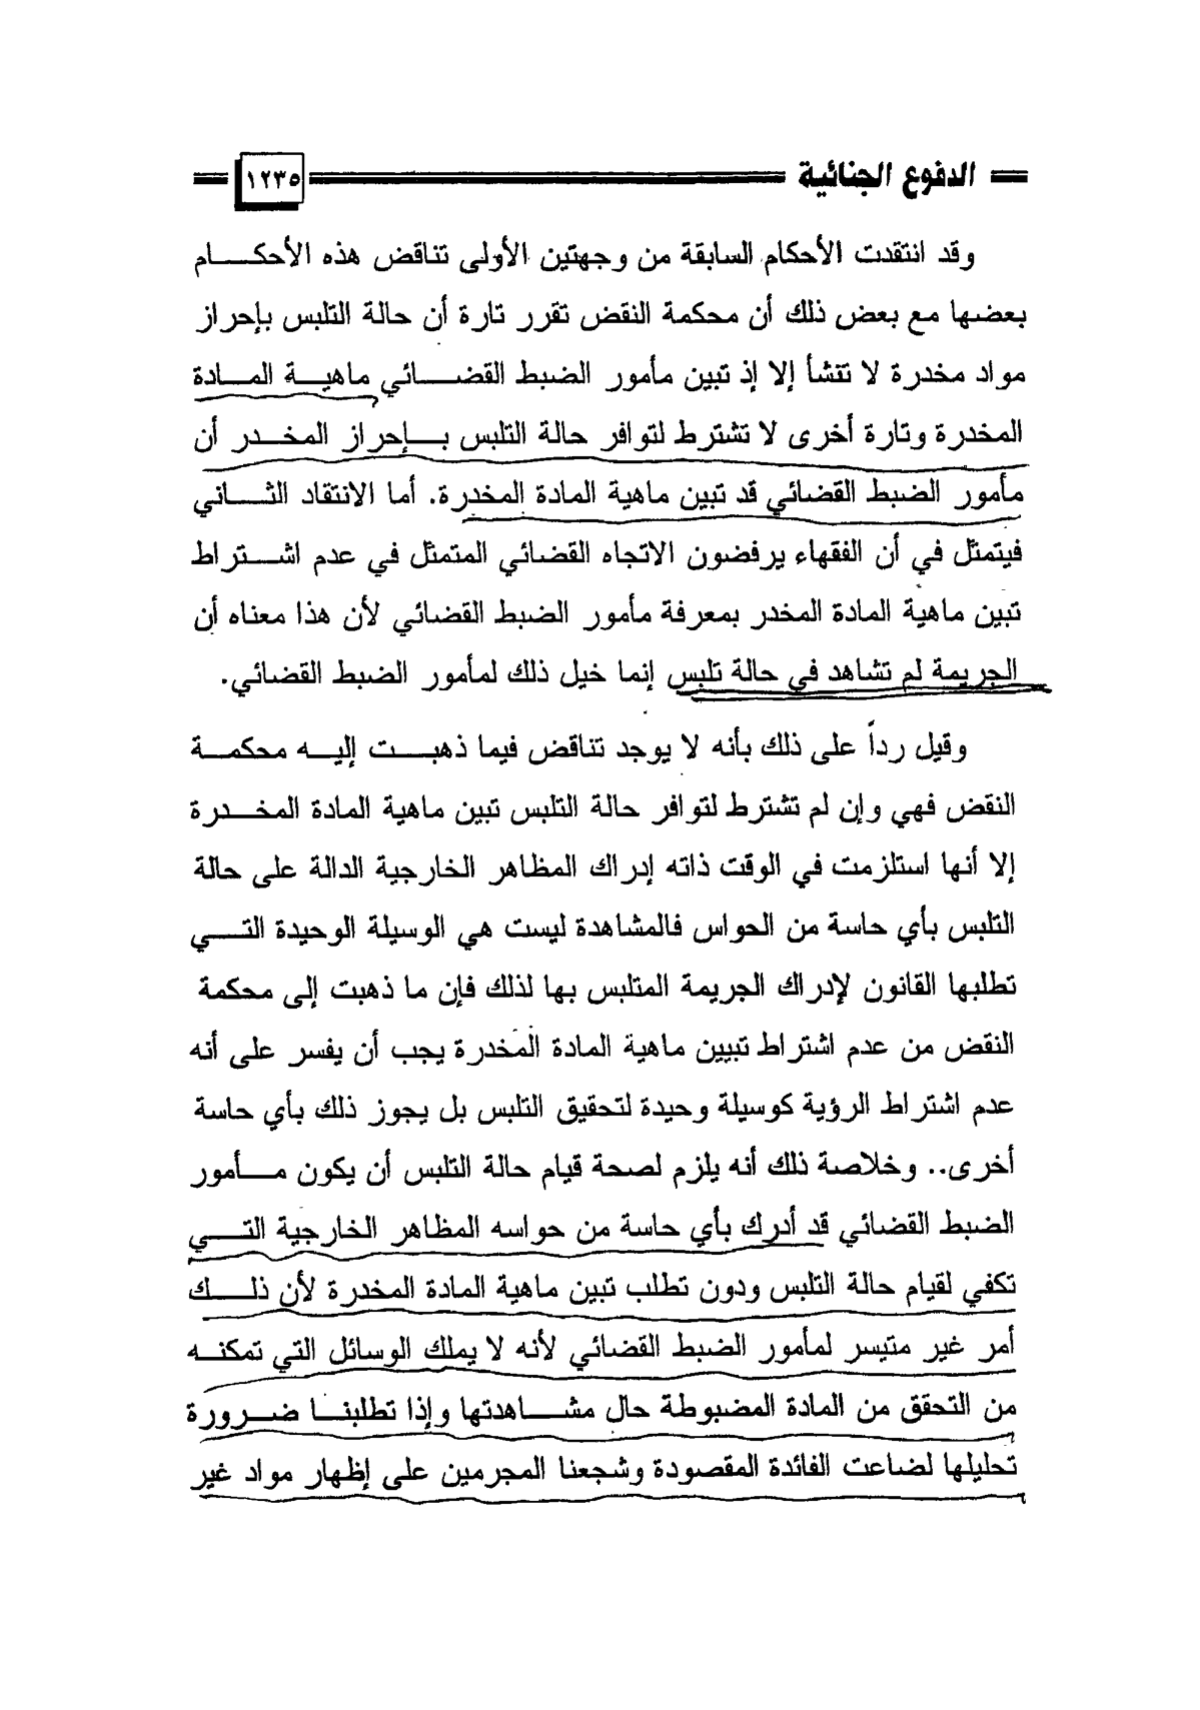 الدفوع الجنائية
١٢٣٥
وقد انتقدت الأحكام السابقة من وجهتين الأولى تناقض هذه الأحكام
بعضها مع بعض ذلك أن محكمة النقض تقرر تارة أن حالة التلبس بإحراز
مواد مخدرة لا تنشأ إلا إذ تبين مأمور الضبط القضائي ماهية المادة
المخدرة وتارة أخرى لا تشترط لتوافر حالة التلبس بإحراز المخدر أن
مأمور الضبط القضائي قد تبين ماهية المادة المخدرة. أما الانتقاد الثاني
فيتمثل في أن الفقهاء يرفضون الاتجاه القضائي المتمثل في عدم اشتراط
تبين ماهية المادة المخدر بمعرفة مأمور الضبط القضائي لأن هذا معناه أن
الجريمة لم تشاهد في حالة تلبس إنما خيل ذلك لمأمور الضبط القضائي.
وقيل رداً على ذلك بأنه لا يوجد تناقض فيما ذهبت إليه محكمة
النقض فهي وإن لم تشترط لتوافر حالة التلبس تبين ماهية المادة المخدرة
إلا أنها استلزمت في الوقت ذاته إدراك المظاهر الخارجية الدالة على حالة
التلبس بأي حاسة من الحواس فالمشاهدة ليست هي الوسيلة الوحيدة التي
تطلبها القانون لإدراك الجريمة المتلبس بها لذلك فإن ما ذهبت إلى محكمة
النقض من عدم اشتراط تبيين ماهية المادة المخدرة يجب أن يفسر على أنه
عدم اشتراط الرؤية كوسيلة وحيدة لتحقيق التلبس بل يجوز ذلك بأي حاسة
أخرى.. وخلاصة ذلك أنه يلزم لصحة قيام حالة التلبس أن يكون مأمور
الضبط القضائي قد أدرك بأي حاسة من حواسه المظاهر الخارجية التي
تكفي لقيام حالة التلبس ودون تطلب تبين ماهية المادة المخدرة لأن ذلك
أمر غير متيسر لمأمور الضبط القضائي لأنه لا يملك الوسائل التي تمكنه
من التحقق من المادة المضبوطة حال مشاهدتها وإذا تطلبنا ضرورة
تحليلها لضاعت الفائدة المقصودة وشجعنا المجرمين على إظهار مواد غير